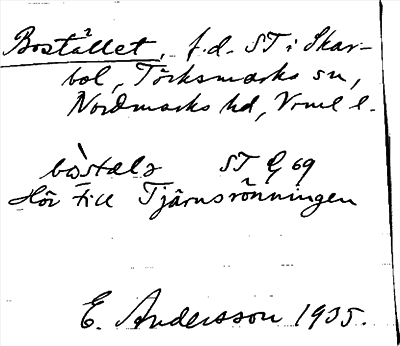 Bostället, f.d. ST i Skar-
bol, Töcksmarks sn,
Nordmarks hd, Vrml l.
bòstælə ST G 69
Hör till Tjärnsrönningen
E. Andersson 1935.